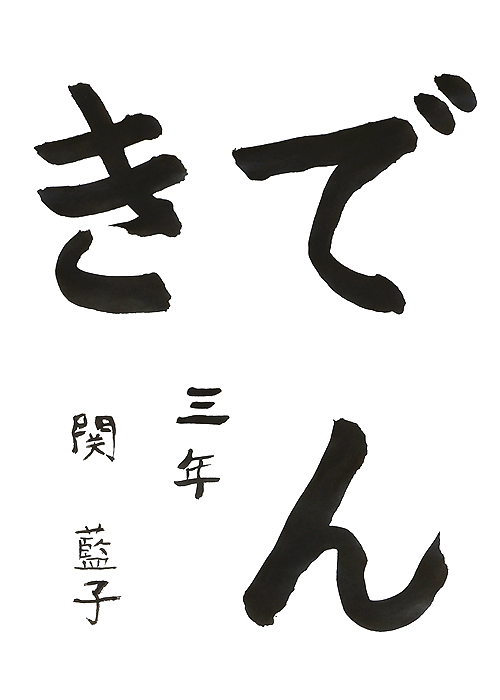 でん
き
三年
関 藍子